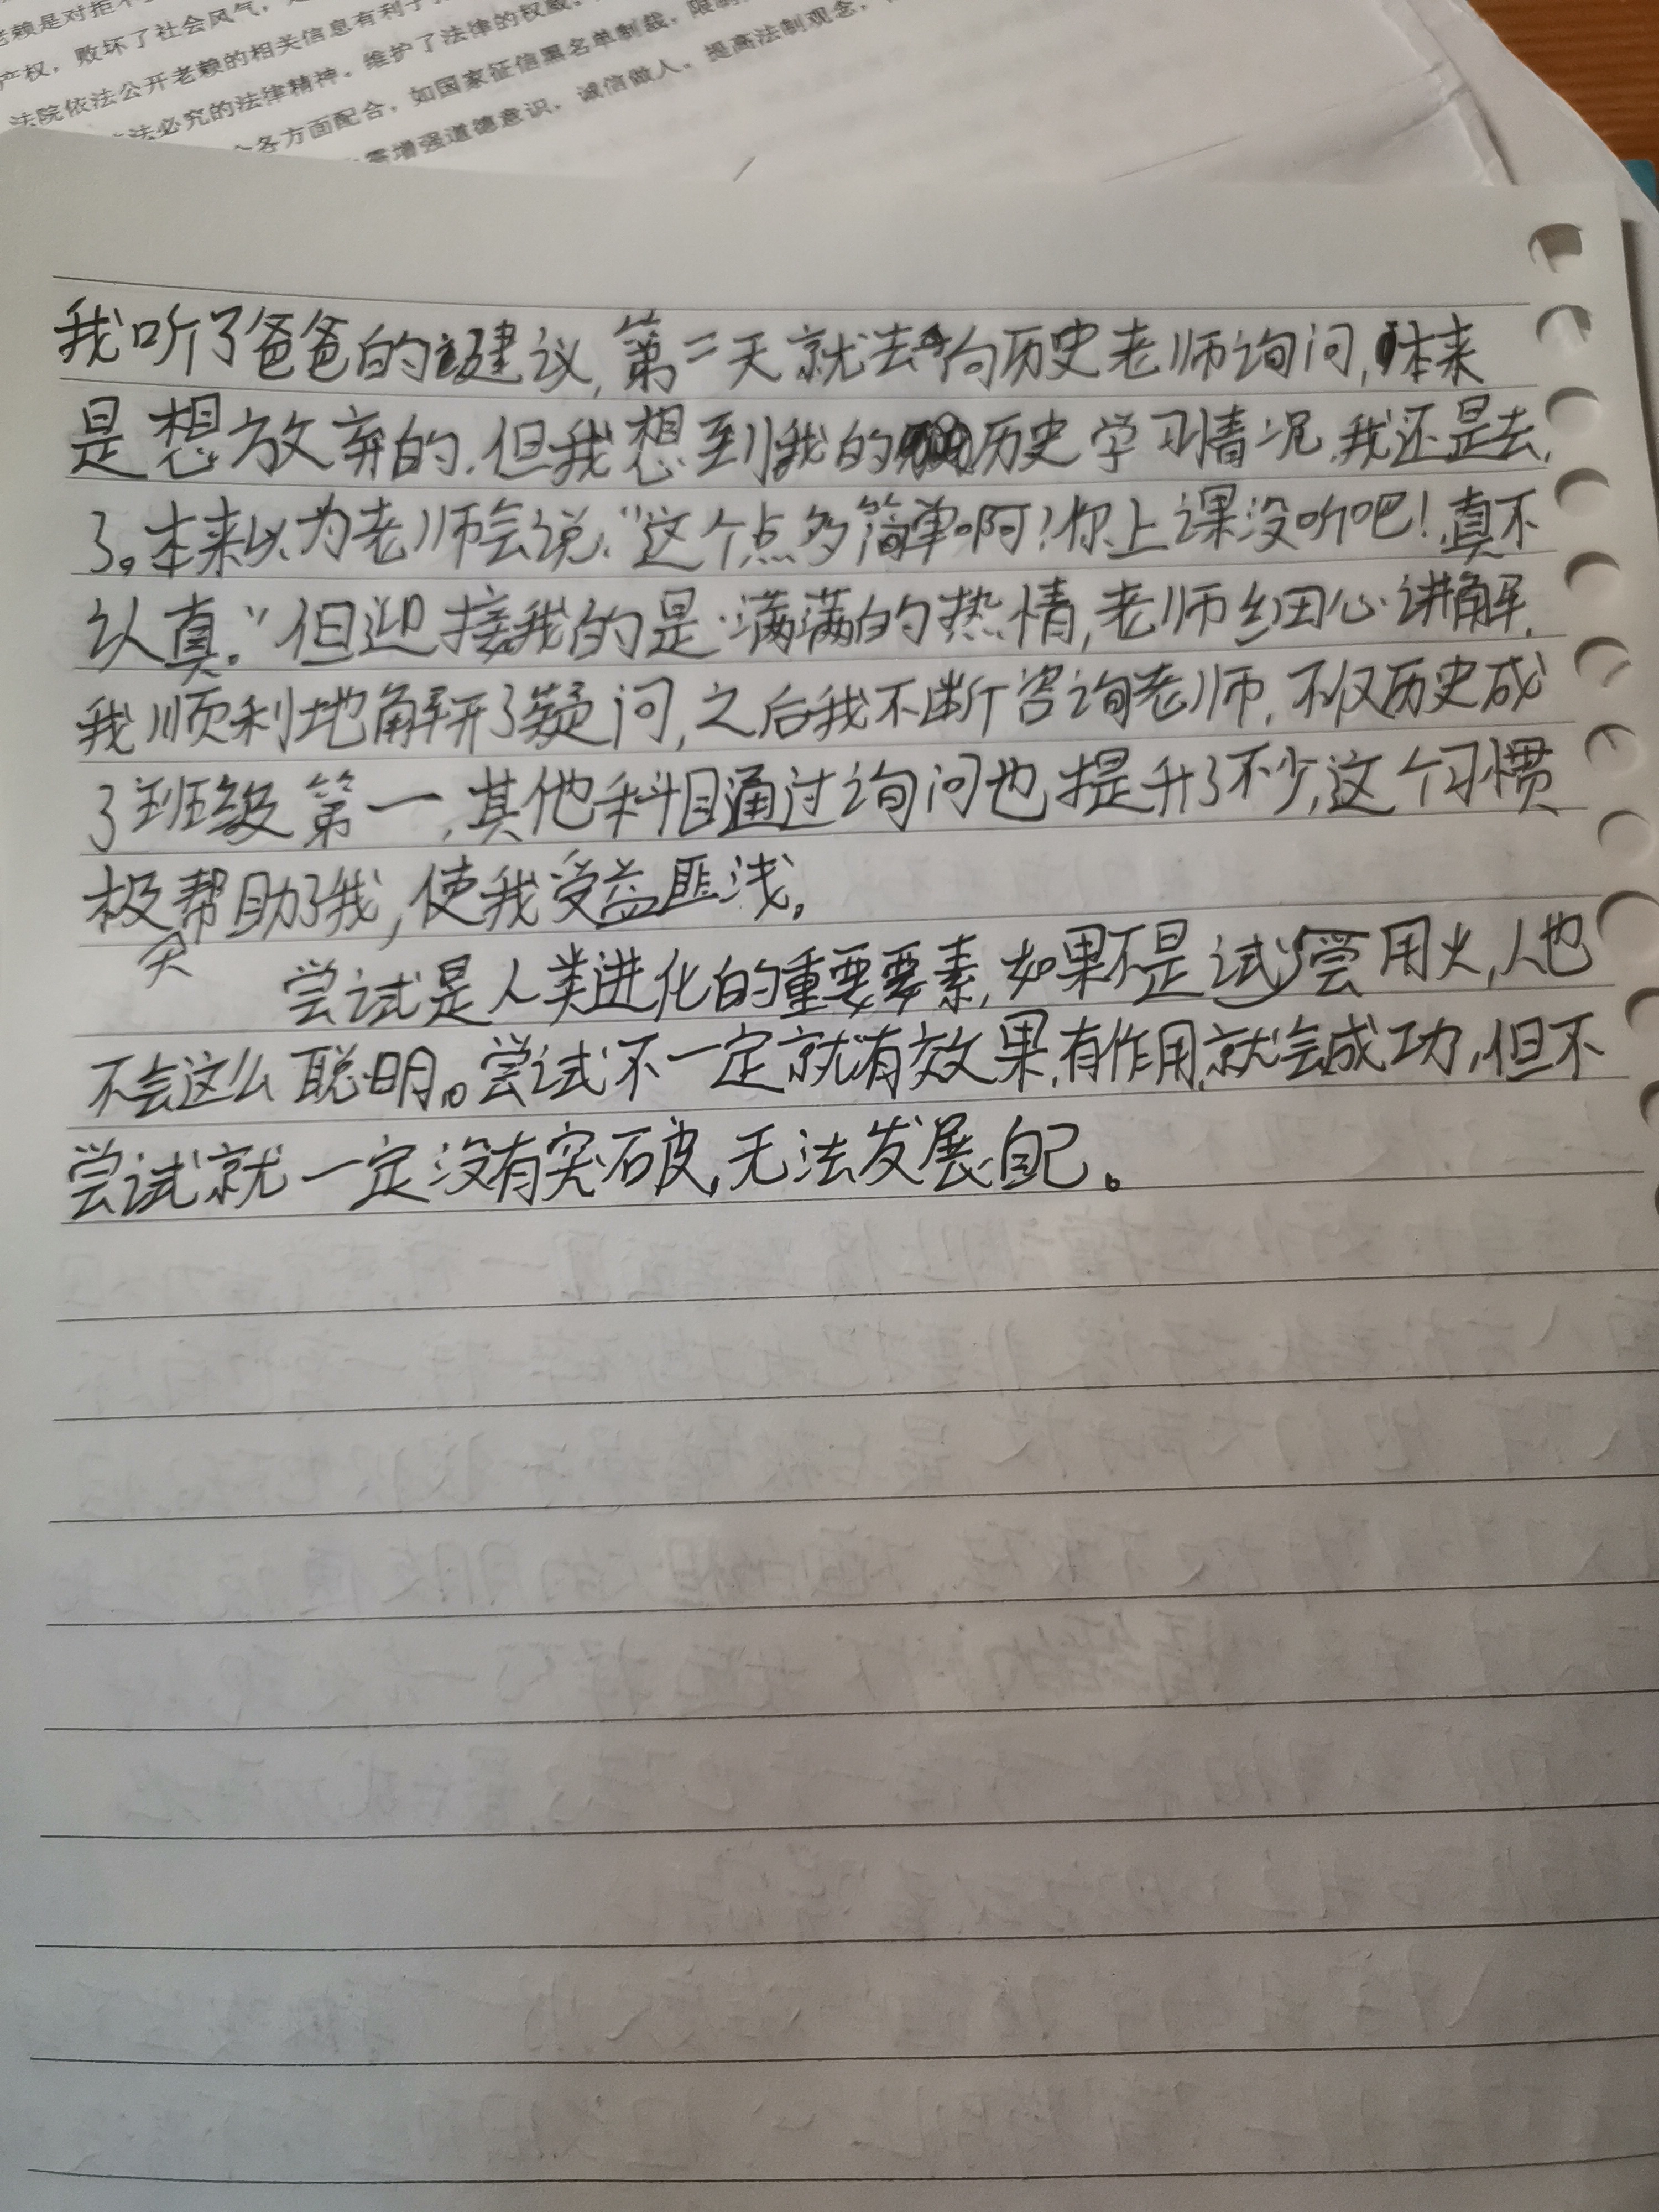 老赖是对拒不
产权，败坏了社会风气，
法院依法公开老赖的相关信息有利于
法必究的法律精神。维护了法律的权威。
各方面配合，如国家征信黑名单制裁，限制
需增强道德意识，诚信做人。提高法制观念，
我听了爸爸的建议,第二天就去向历史老师询问,本来
是想放弃的,但我想到我的历史学习情况,我还是去
了。本来以为老师会说:“这个点多简单啊!你上课没听吧!真不
认真。”但迎接我的是满满的热情,老师细心讲解,
我顺利地解开了疑问,之后我不断咨询老师,不仅历史成
了班级第一,其他科目通过询问也提升了不少,这个习惯
极大帮助了我,使我受益匪浅。
尝试是人类进化的重要要素,如果不是试尝用火,人也
不会这么聪明。尝试不一定就有效果,有作用,就会成功,但不
尝试就一定没有突破,无法发展自己。